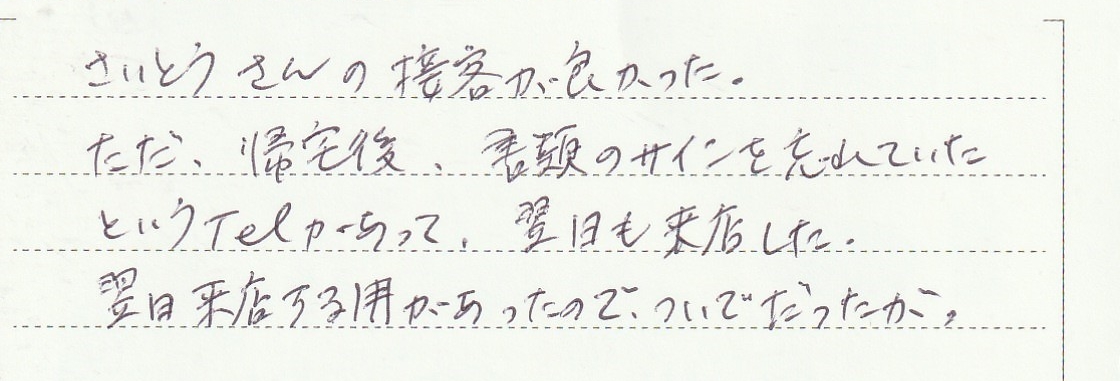 さいとうさんの接客が良かった。
ただ、帰宅後、書類のサインを忘れていた
というTelがあって、翌日も来店した。
翌日来店する用があったので、ついでだったが。